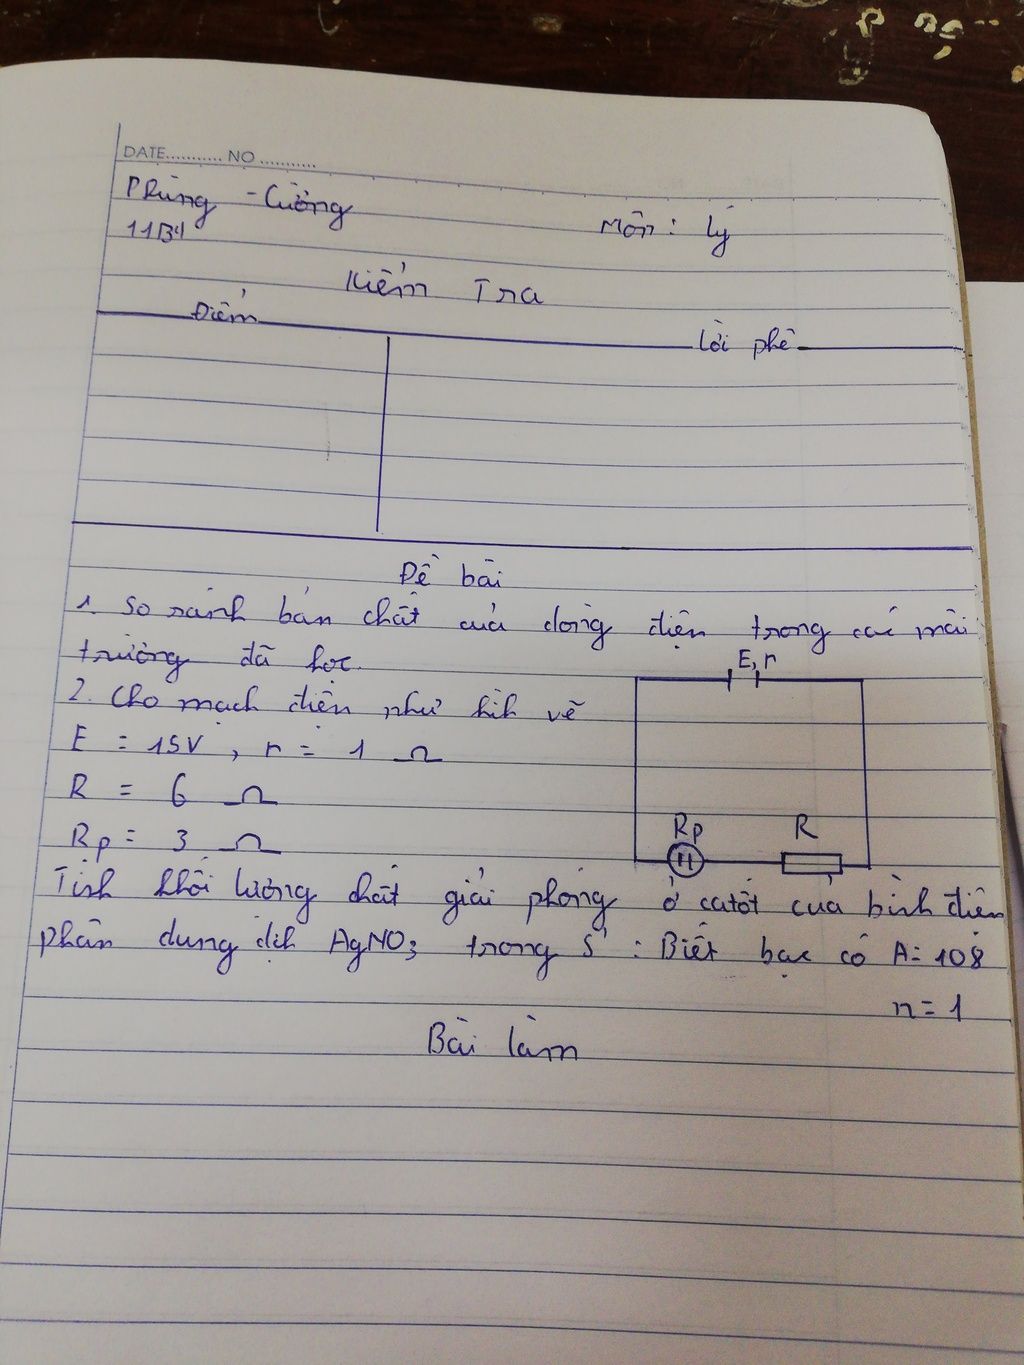 DATE........... NO ...........
Phùng - Cường
11B4
Môn: Lý
Kiểm Tra
Điểm
Lời phê
Đề bài
1. So sánh bản chất của dòng điện trong các môi
trường đã học.
E, r
2. Cho mạch điện như hih vẽ
E = 15V, r = 1 Ω
R = 6 Ω
Rp = 3 Ω
Rp R
Tính khối lượng chất giải phóng ở catốt của bình điện
phân dung dịh AgNO3 trong : Biết bạc có A = 108
n = 1
Bài làm